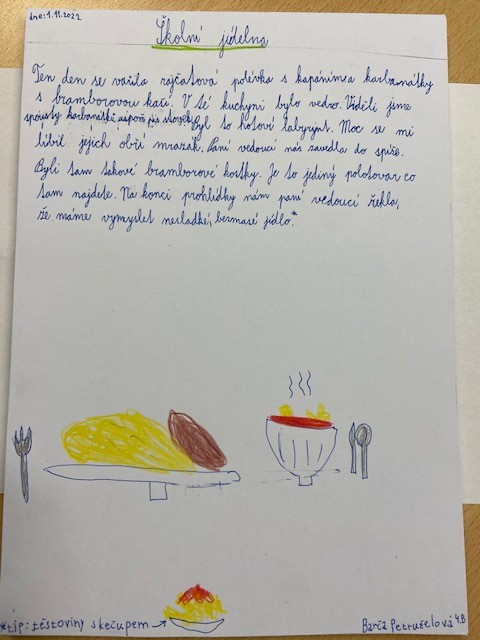 dne: 1.11.2022
Školní jídelna
Ten den se vařila rajčatová polévka s kapáním a karbanátky
s bramborovou kaší. V té kuchyni bylo vedro. Viděli jsme
spousty karbanátků, aspoň pro
Byl to hotový labyrint. Moc se mi
líbil jejich obří mrazák. Paní vedoucí nás zavedla do spíže.
Byli tam takové bramborové kostky. Je to jediný polotovar co
tam najdete. Na konci prohlídky nám paní vedoucí řekla,
že máme vymyslet nesladké, bezmasé jídlo.*
*tip: těstoviny s kečupem
Barča Petruželová 4.B